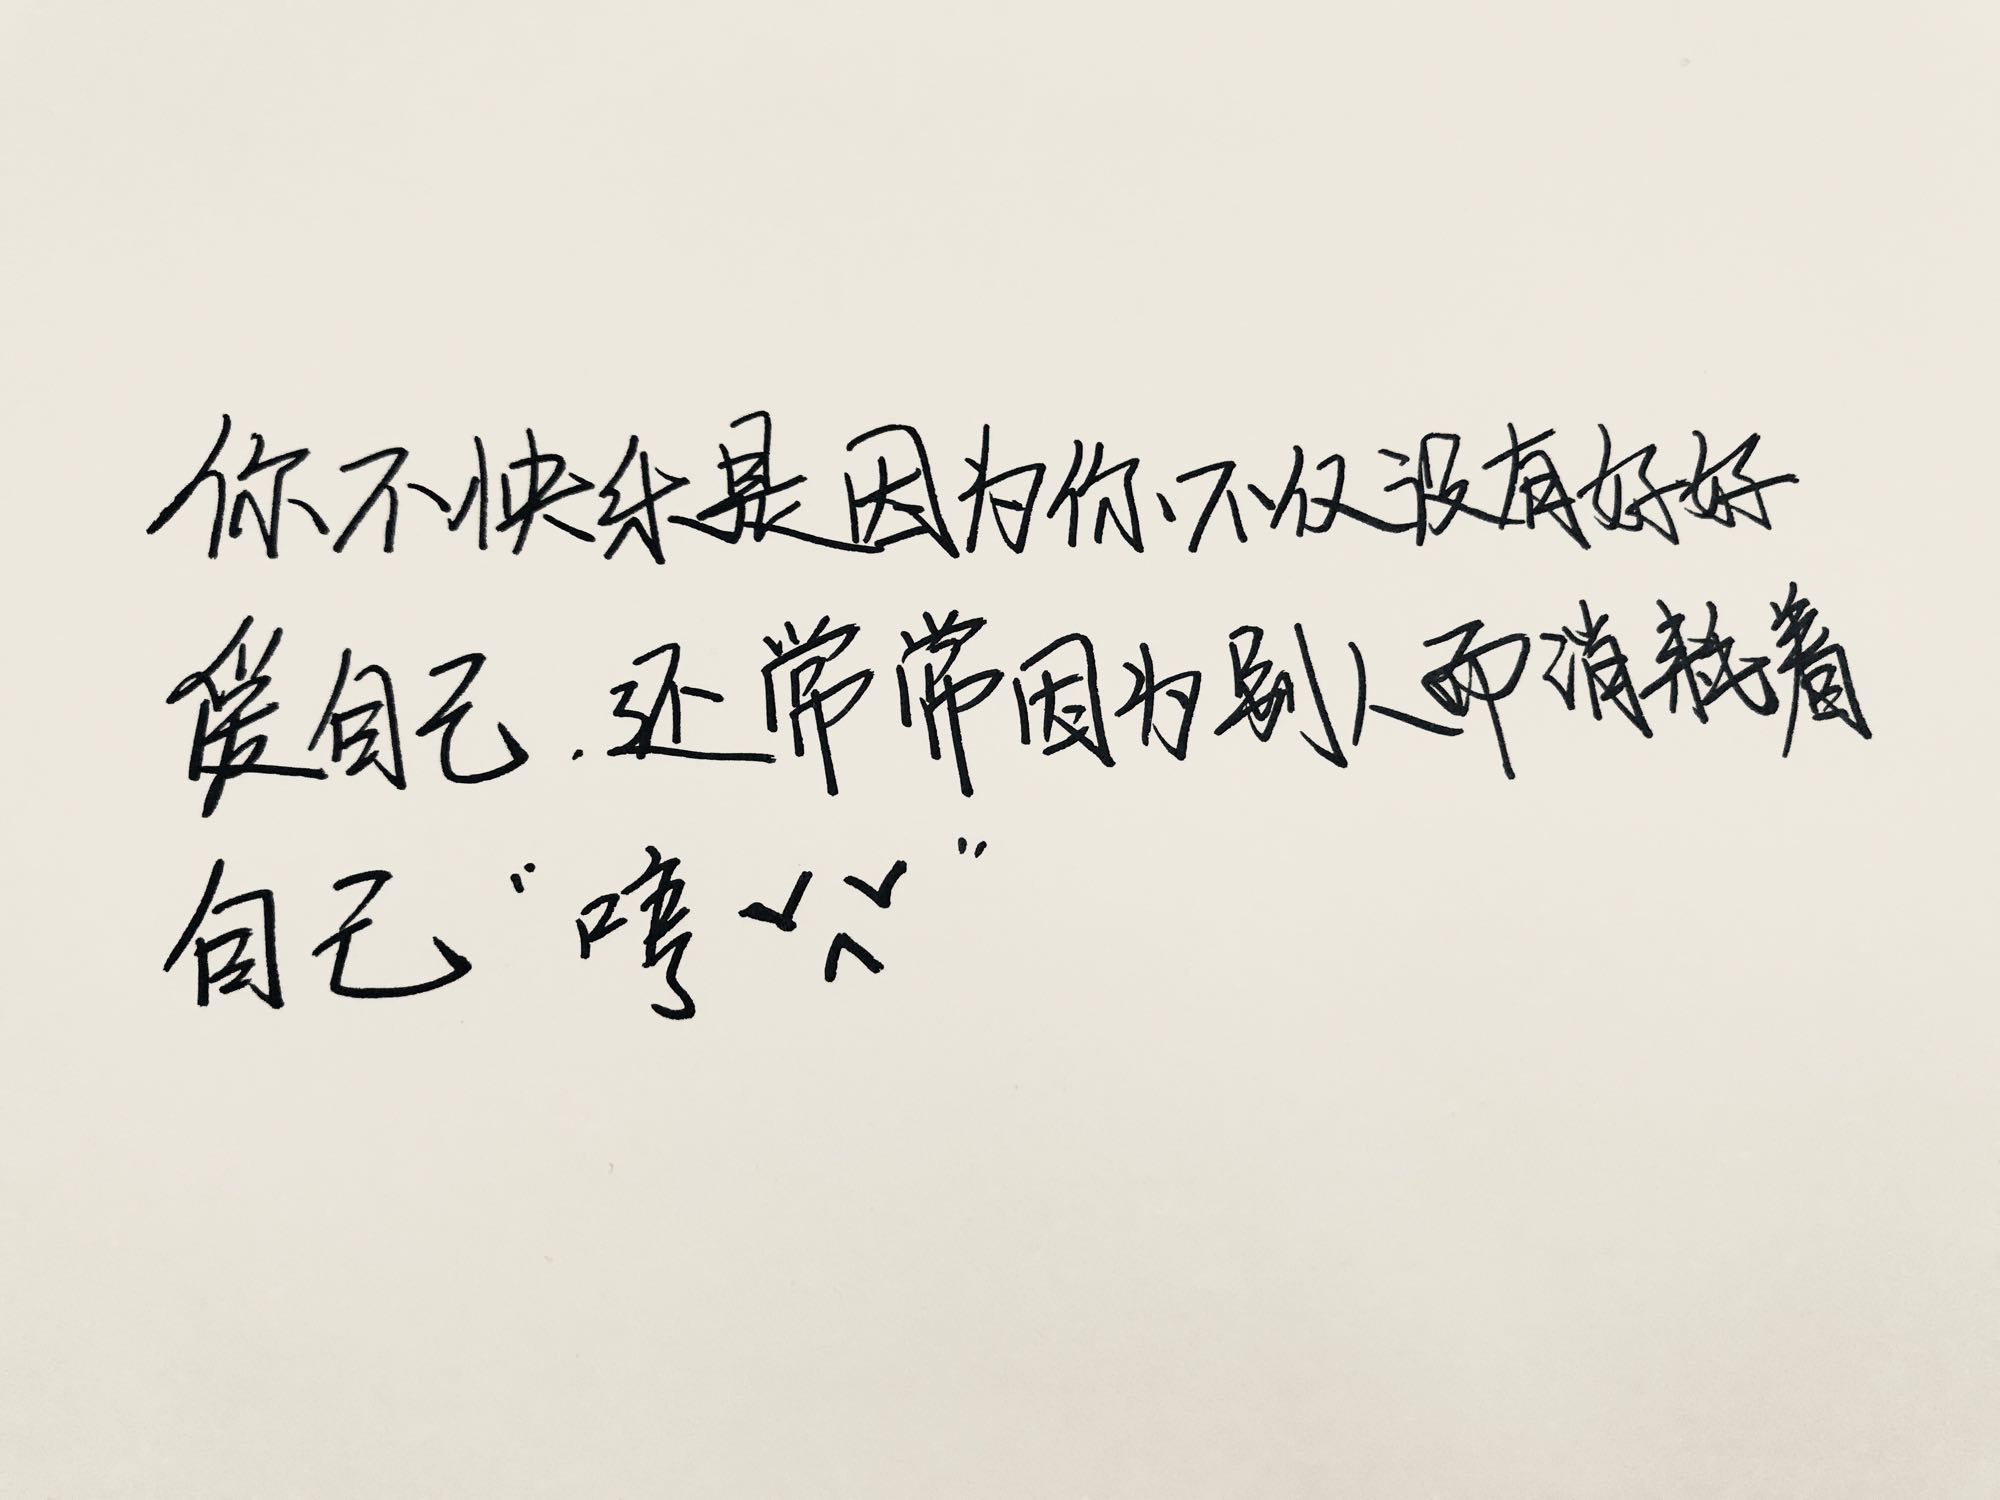 你不快乐是因为你不仅没有好好
爱自己.还常常因为别人而消耗着
自己“哼ˇ^ˇ”